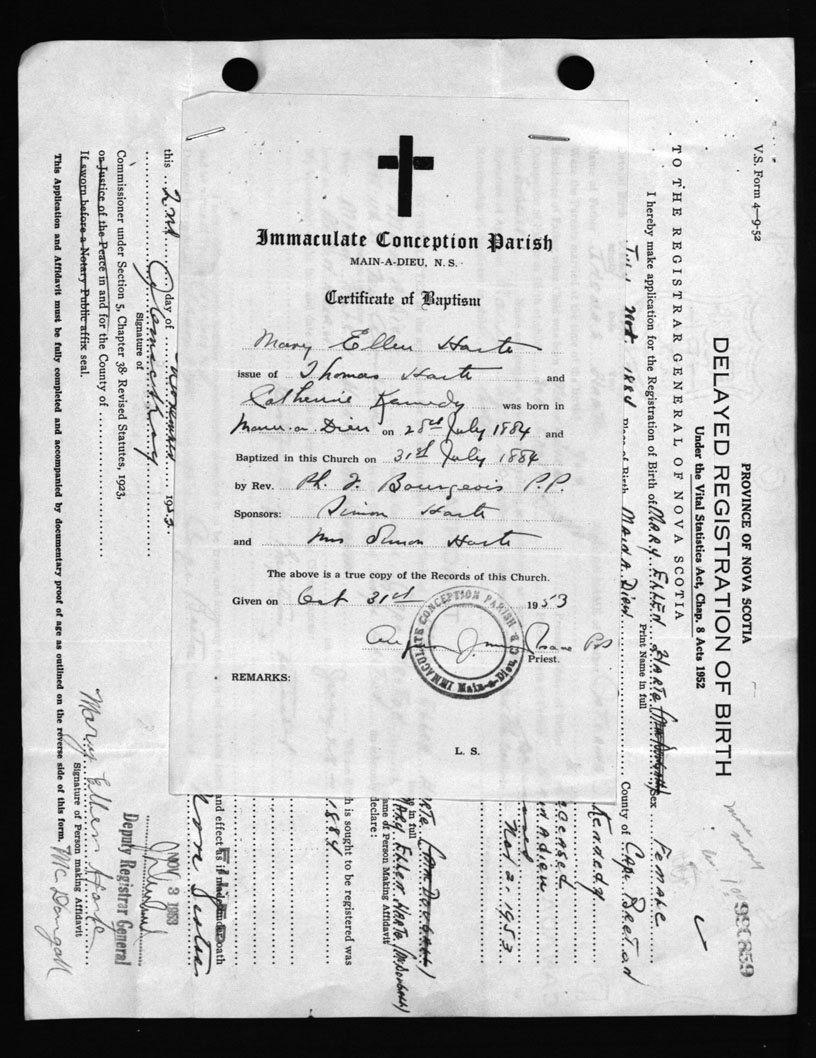 Immaculate Conception Parish
MAIN-A-DIEU, N. S.
Certificate of Baptism
Mary Ellen Harte
issue of Thomas Harte and
Catherine Kennedy was born in
Main-a-Dieu on 28th July 1884 and
Baptized in this Church on 31st July 1884
by Rev. Ph. J. Bourgeois P.P.
Sponsors: Simon Harte
and Mrs Simon Harte
The above is a true copy of the Records of this Church.
Given on Oct 31st 1953
Priest.
REMARKS:
L. S.
IMMACULATE CONCEPTION PARISH
Main-a-Dieu, C. B.
V.S. Form 4—9-52
990859
PROVINCE OF NOVA SCOTIA
DELAYED REGISTRATION OF BIRTH
Under the Vital Statistics Act, Chap. 8 Acts 1952
TO THE REGISTRAR GENERAL OF NOVA SCOTIA
I hereby make application for the Registration of Birth of MARY ELLEN HARTE (MacDougall) Sex Female
Print Name in full
1884 Place of Birth MAIN A DIEU County of Cape Breton
Kennedy
Nov 2, 1953
HARTE (MacDougall)
in full
MARY ELLEN HARTE (MacDougall)
Name of Person Making Affidavit
declare:
h is sought to be registered was
1884
and effect as if made under oath
this 2nd day of November 1953.
Signature of
Commissioner under Section 5, Chapter 38 Revised Statutes, 1923,
or Justice of the Peace in and for the County of
If sworn before a Notary Public affix seal.
NOV 3 1953
Deputy Registrar General
Mary Ellen Harte McDougall
Signature of Person making Affidavit
This Application and Affidavit must be fully completed and accompanied by documentary proof of age as outlined on the reverse side of this form.